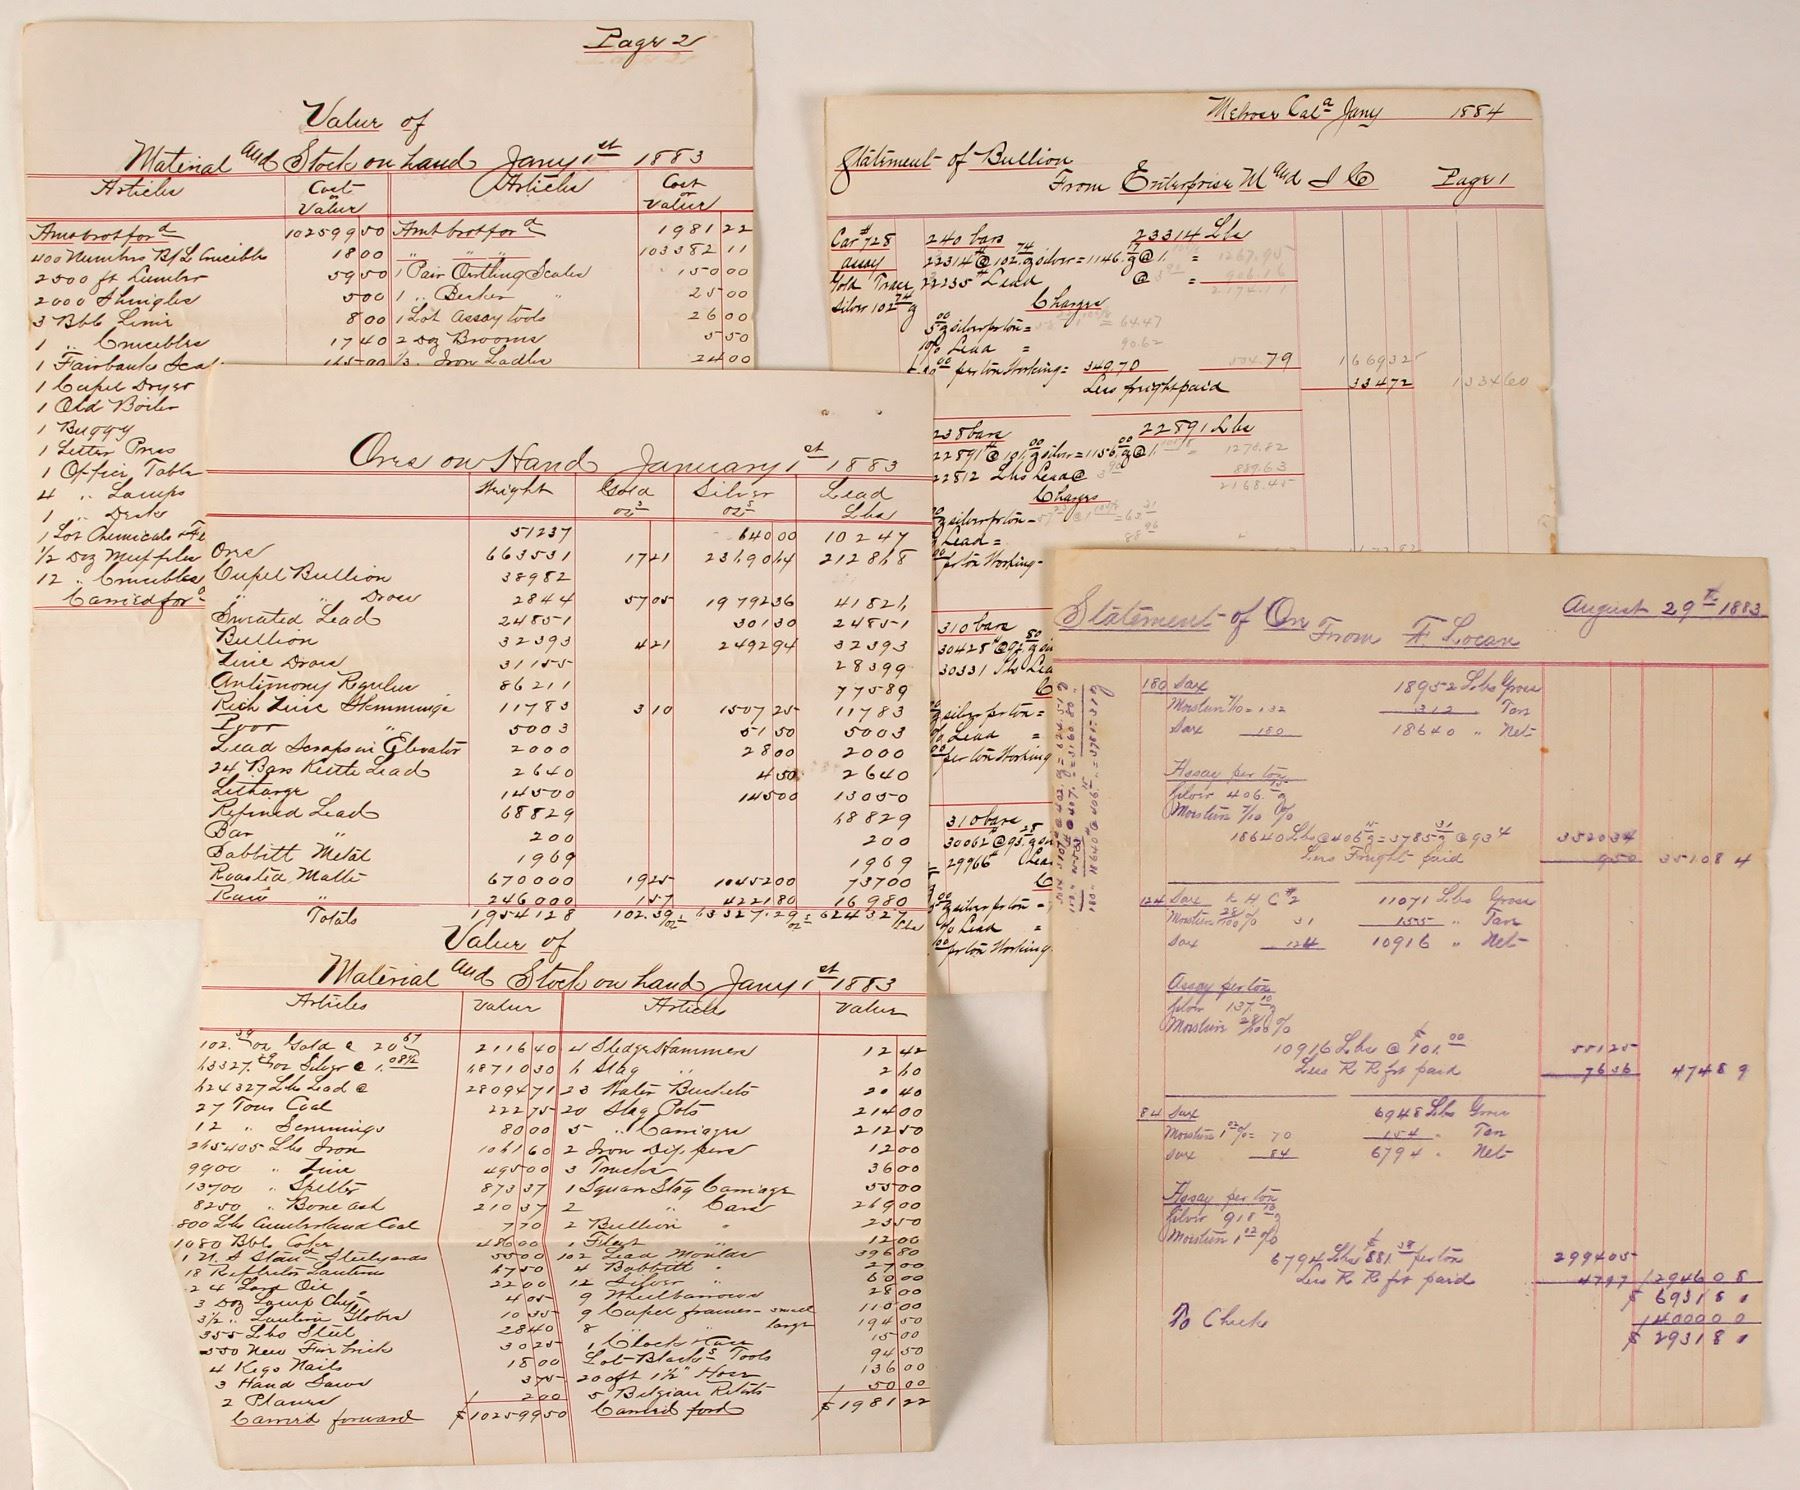 Page 2
Value of
Material and Stock on hand Jany 1st 1883
Articles Cost or Value Articles Cost or Value
Amt brot ford 102599 50 Amt brot ford 1981 22
400 Numbers B/L Crucibles 18 00 " " " 103382 11
2500 ft Lumber 59 50 1 Pair Oertling Scales 150 00
2000 Shingles 5 00 1 " Becker " 25 00
3 Bbls Lime 8 00 1 Lot Assay tools 26 00
1 " Crucibles 17 40 2 Doz Brooms 5 50
1 Fairbanks Scal 165 00 1/3 " Iron Ladles 24 00
1 Cupel Dryer
1 Old Boiler
1 Buggy
1 Letter Press
1 Office Table
4 " Lamps
1 " Desk
1 Lot Chemicals &
1/2 Doz Muffles
12 " Crucibles
Carried ford
Melrose Cala Jany 1884
Statement of Bullion
From Enterprise M and S Co Page 1
Car #728 240 bars 23314 Lbs
assay 22314# @ 102.74 oz silver = 1146.17 oz @ 1. = 1267.95
Gold Trace 22235# Lead @ 3 90 = 906.16
Silver 102 74 oz 2174.11
Charges
5 00 oz silver per ton = = 64.47
10% Lead = 90.62
00 per ton Working = 349.70 504.79 1669 32
Less freight paid 334 72 1334 60
238 bars 22891 Lbs
22891# @ 101.00 oz silver = 1156.00 oz @ 1. = 1278.82
22812 Lbs Lead @ 3 90 889.63
2168.45
Charges
oz silver per ton = = 63.31
Lead = 88 96
per ton Working =
310 bars
30428# @ 92.80 oz
30331 Lbs Lea
oz silver per ton =
% Lead =
per ton Working
310 bars
30062# @ 95.28 oz
29966# Lea
oz silver per ton =
% Lead =
per ton Working
Ores on Hand January 1st 1883
Weight Gold ozs Silver ozs Lead Lbs
51237 640 00 10247
Ores 663531 17 21 23690 64 212868
Cupel Bullion 38982
" Dross 2844 57 05 19792 36 41826
Sweated Lead 24851 301 30 24851
Bullion 32393 4 21 2492 94 32393
Zinc Dross 31155 28399
Antimony Regulus 86211 77589
Rich Zinc Skimmings 11783 3 10 1507 25 11783
Poor " 5003 51 50 5003
Lead Scraps in Elevator 2000 28 00 2000
24 Bars Kettle Lead 2640 4 50 2640
Litharge 14500 145 00 13050
Refined Lead 68829 68829
Bar " 200 200
Babbitt Metal 1969 1969
Roasted Matte 670000 19 25 10452 00 73700
Raw " 246000 1 57 4221 80 16980
Totals 1954128 102.39 ozs 63327.29 ozs 624327 Lbs
Value of
Material and Stock on hand Jany 1st 1883
Articles Value Articles Value
102.39 oz Gold @ 20 67 2116 40 4 Sledge Hammers 12 42
63327.29 oz Silver @ 1.08 1/2 68710 30 6 Slag " 2 60
624327 Lbs Lead @ 28094 71 23 Water Buckets 20 40
27 Tons Coal 222 75 20 Slag Pots 214 00
12 " Screenings 80 00 5 " Carriages 212 50
265405 Lbs Iron 1061 60 2 Iron Dippers 12 00
9900 " Zinc 495 00 3 Trucks 36 00
13700 " Spelter 873 37 1 Square Slag Carriage 55 00
8250 " Bone ash 210 37 2 " Cars 269 00
800 Lbs Cumberland Coal 7 70 2 Bullion " 23 50
1080 Bbls Coke 486 00 1 Fleet " 12 00
55 00 102 Lead Moulds 396 80
18 Reflector Lanterns 67 50 4 Babbitt " 27 00
24 Lard Oil 22 00 12 Silver " 60 00
3 Doz Lamp Chys 4 05 9 Wheelbarrows 28 00
3 1/2 " Lantern Globes 10 35 9 Cupel frames - small 110 00
355 Lbs Steel 28 40 8 " " large 194 50
550 New Fire brick 30 25 1 Clock 15 00
4 Kegs Nails 18 00 Lot Blacks Tools 94 50
3 Hand Saws 3 75 200 ft 1 1/2" Hose 136 00
2 Planes 2 00 5 Belgian Retorts 50 00
Carried forward $102599 50 Carried ford $1981 22
August 29th 1883
Statement of Ore From F. Locan
180 Sax 18952 Lbs Gross
Moisture 7/10 = 132 312 " Tare
Sax 180 18640 " Net
Assay per ton
Silver 406.15 oz
Moisture 7/10 %
18640 Lbs @ 406 15 oz = 3785 31 oz @ 93 ¢ 3520 34
Less Freight paid 9 50 3510 84
124 Sax K H C #2 11071 Lbs Gross
Moisture 28/100 % 31 155 " Tare
Sax 124 10916 " Net
Assay per ton
Silver 137.10 oz
Moisture 28/100 %
10916 Lbs @ $101.00 551 25
Less R R frt paid 76 36 474 89
84 Sax 6948 Lbs Gross
Moisture 1 02 % = 70 154 " Tare
Sax 84 6794 " Net
Assay per ton
Silver 918 oz
Moisture 1 02 %
6794 Lbs $881.38 per ton 2994 05
Less R R frt paid 47 97 2946 08
$ 6931 81
To Check 4000 00
$ 2931 81